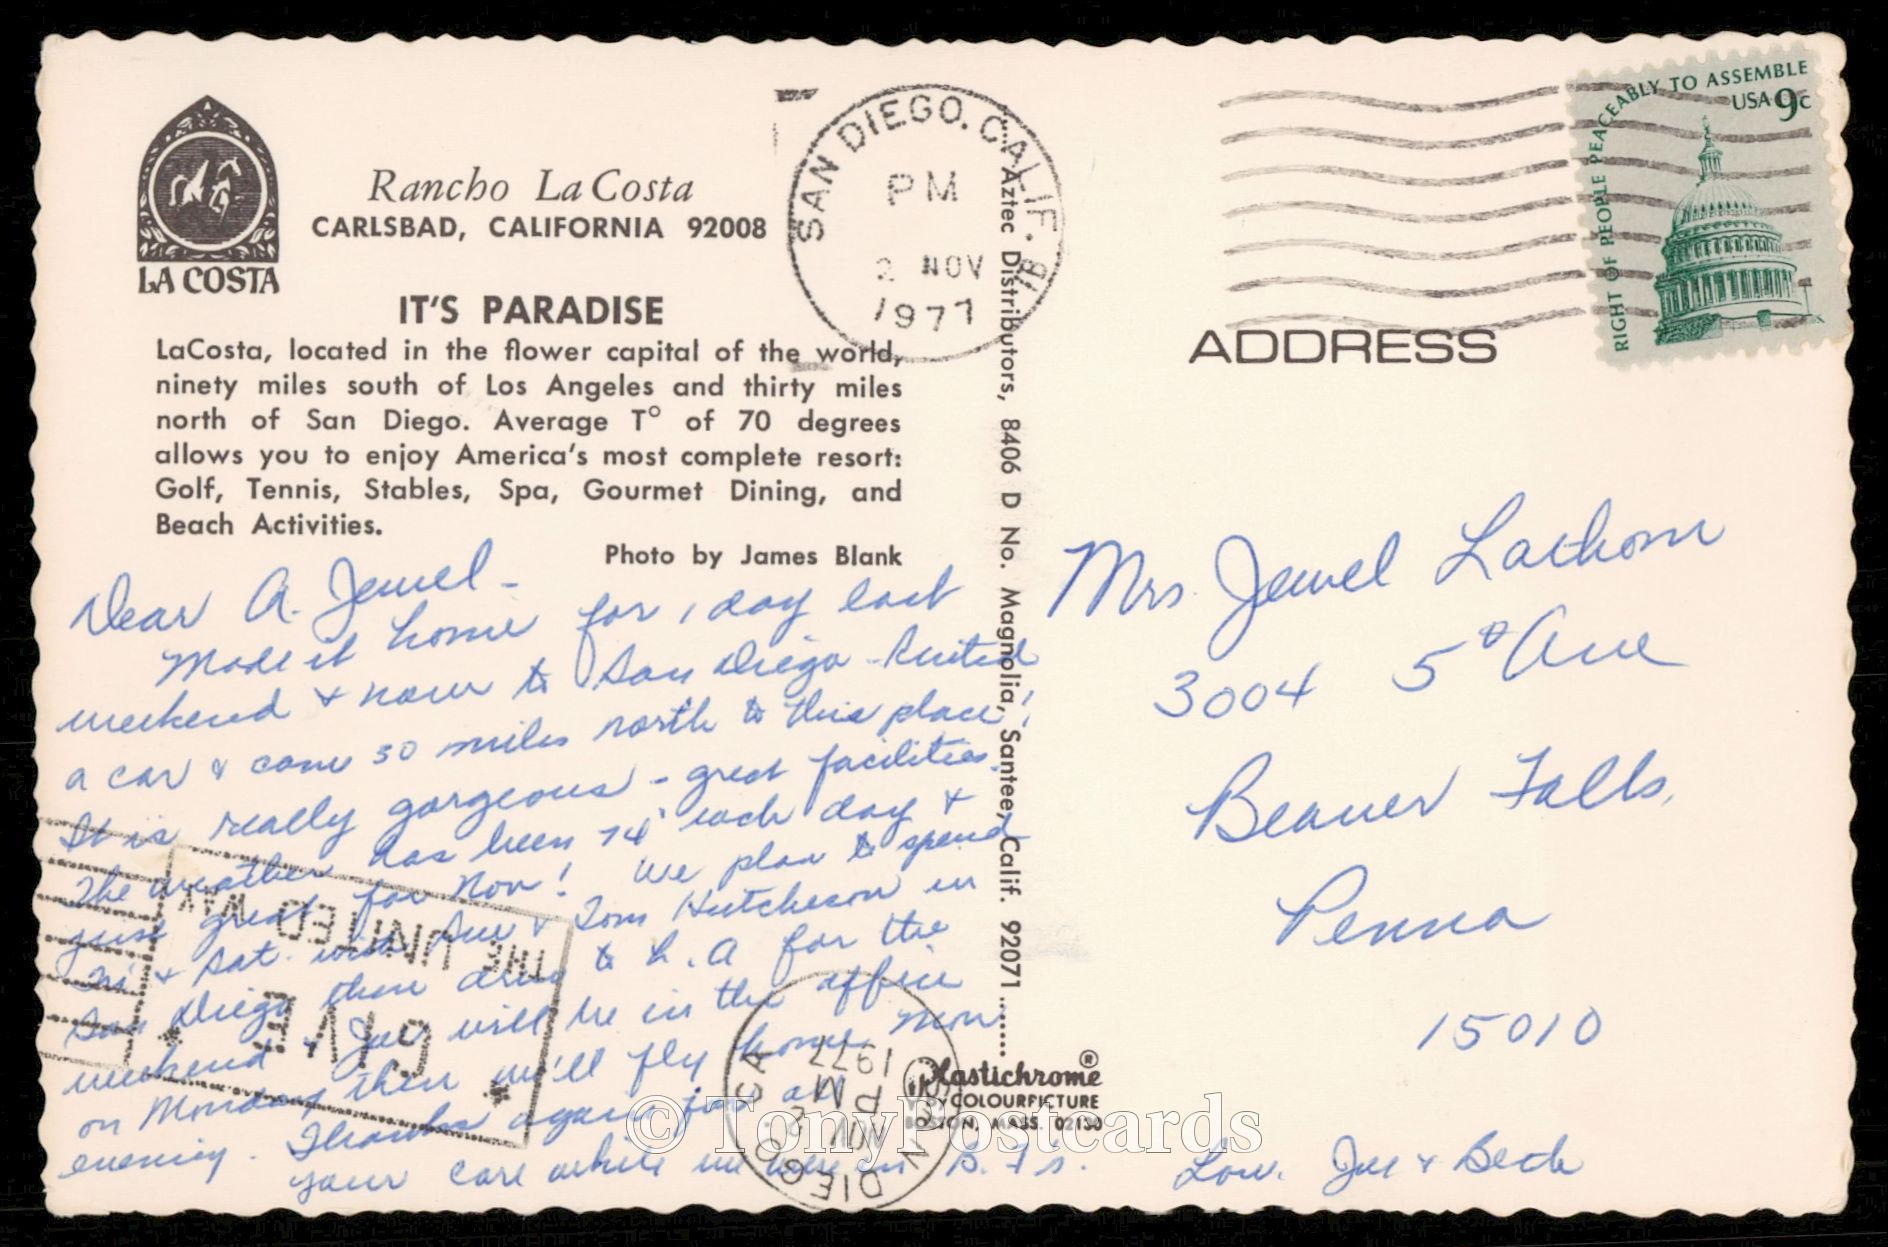 LA COSTA
Rancho La Costa
CARLSBAD, CALIFORNIA 92008
IT'S PARADISE
LaCosta, located in the flower capital of the world,
ninety miles south of Los Angeles and thirty miles
north of San Diego. Average T° of 70 degrees
allows you to enjoy America's most complete resort:
Golf, Tennis, Stables, Spa, Gourmet Dining, and
Beach Activities.
Photo by James Blank
Dear A. Jewel -
Made it home for 1 day last
weekend & now to San Diego - Rented
a car & came 30 miles north to this place!
It is really gorgeous - great facilities.
The weather has been 74° each day &
just great for Nov! We plan to spend
Fri & Sat. with Sue & Tom Hutcheson in
San Diego then drive to L.A for the
weekend & Joe will be in the office
on Monday then we'll fly home Mon
evening. Thanks again for all
your care while we were in B. Fs.
Love, Joe & Beck
SAN DIEGO. CALIF.
PM
2 NOV
1977
Aztec Distributors, 8406 D No. Magnolia, Santee, Calif. 92071
RIGHT OF PEOPLE PEACEABLY TO ASSEMBLE
USA 9c
ADDRESS
Mrs. Jewel Lathom
3004 5th Ave
Beaver Falls,
Penna
15010
GIVE
THE UNITED WAY
SAN DIEGO CA
PM
2 NOV
1977
Plastichrome®
BY COLOURPICTURE
BOSTON, MASS. 02130
© TonyPostcards